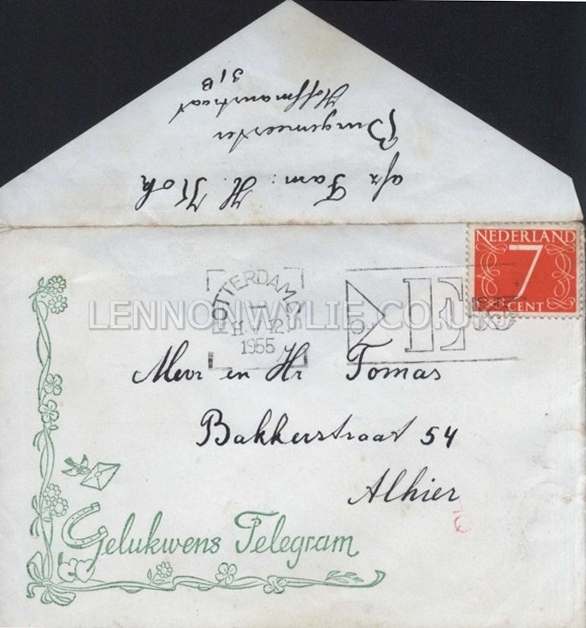 afz Fam: H. Kok
Burgemeester
Hoffmanstraat
31B
NEDERLAND
7
CENT
ROTTERDAM
1955
E
LENNONWYLIE.CO.UK
Mevr en Hr Tomas
Bakkerstraat 54
Alhier
Gelukwens Telegram